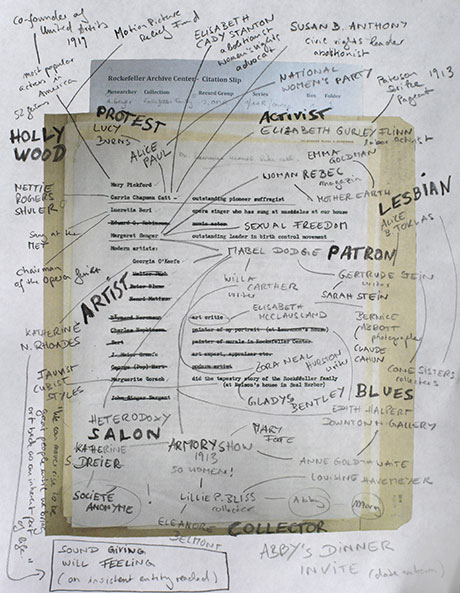 co-founder of
United Artists
1919
Motion Picture
Relief Fund
most popular
actress in
America
52 films
ELISABETH
CADY STANTON
abolitionist
women's rights
advocat
SUSAN B. ANTHONY
civic rights leader
abolitionist
Rockefeller Archive Center - Citation Slip
Researcher Collection Record Group Series
Box Folder
NATIONAL
WOMEN'S PARTY
Paterson 1913
Strike
Pageant
PROTEST
LUCY
BURNS
ALICE
PAUL
ACTIVIST
ELIZABETH GURLEY FLINN
labor activist
EMMA
GOLDMAN
HOLLY
WOOD
WOMAN REBEL
magazin
MOTHER EARTH
LESBIAN
ALICE
B TOKLAS
NETTIE
ROGERS
SHULER
Mary Pickford
Carrie Chapman Catt - outstanding pioneer suffragist
Lucretia Bori opera singer who has sung at musicales at our house
SEXUAL FREEDOM
Margaret Sanger outstanding leader in birth control movement
Modern artists:
Georgia O'Keefe
sung at the
MET
chairman
of the Opera Guild
MABEL DODGE
PATRON
GERTRUDE STEIN
writer
SARAH STEIN
WILLA
CARTHER
writer
ARTIST
ELISABETH
MCCLAUSLAND
BERNICE
ABBOTT
photographer
CLAUDE
CAHUN
KATHERINE
N. RHOADES
art critic
painter of my portrait (at Laurance's house)
painter of murals in Rockefeller Center
art expert, appraiser etc.
modern artist
Marguerite Zorach did the tapestry story of the Rockfeller family
(at Nelson's house in Seal Harbor)
John Singer Sargent
ZORA NEAL HURSTON
writer
CONE SISTERS
collectors
FAUVIST
CUBIST
STYLES
GLADYS
BENTLEY
BLUES
EDITH HALPERT
DOWNTOWN GALLERY
HETERODOXY
SALON
KATHERINE
S DREIER
MARY
FOOTE
ARMORY SHOW
1913
50 WOMEN!
ANNE GOLDTHWAITE
LOUISINE HAVEMEYER
SOCIÉTÉ
ANONYME
!
LILLIE P. BLISS
collector
Abby
Mary
ELEANORE
BELMONT
COLLECTOR
ABBY'S DINNER
INVITE
SOUND GIVING
WILL FEELING
(an insistent entity reached)